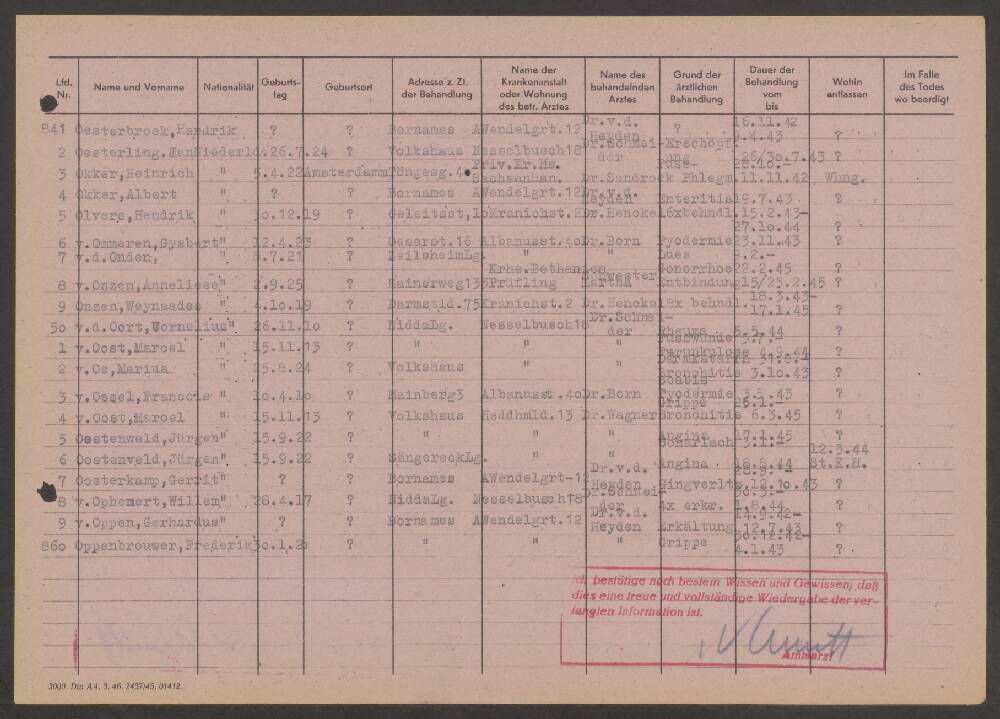 Lfd. Nr. | Name und Vorname | Nationalität | Geburts- tag | Geburtsort | Adresse z. Zt. der Behandlung | Name der Krankenanstalt oder Wohnung des betr. Arztes | Name des behandelnden Arztes | Grund der ärztlichen Behandlung | Dauer der Behandlung vom bis | Wohin entlassen | Im Falle des Todes wo beerdigt
841 Oesterbrock,Hendrik ? ? Bornames AWendelgrt.12 Dr.v.d. Heyden ? 16.11.42 9.4.43 ?
2 Oesterling. Niederld. 26.7.24 ? Volkshaus Nesselbusch18 Dr.Schnei- der Erschöpf. ung 26/30.7.43 ?
3 Okker,Heinrich " 5.4.22 Amsterdamm Priv.Kr.Hs. Sachsenhan. Dr.Sandrock Phlegm. 11.11.42 Whng.
4 Okker,Albert " ? ? Bornames AWendelgrt.12 Dr.v.d. Heyden Enteritis 19.7.43 ?
5 Olvers,Hendrik " 30.12.19 ? Geleitsst,10 Kranichst.2 Dr.Henckel 16xbehndl. 15.2.43- 27.10.44 ?
6 v.Ommeren,Gysbert" 12.4.23 ? Oeserst.16 Albanusst.4o Dr.Born Pyodermie 23.11.43 ?
7 v.d.Onden, " 8.7.21 ? ZeilsheimLg. " " Lues Gonorrhoe 9.2.- 22.2.45 ?
8 v.Onzen,Anneliese" 2.9.25 ? Mainzerweg135 Krhs.Bethanien Prüfling Martha Entbindung 15/25.2.45 ?
9 Onzen,Weynandes " 4.10.19 ? Darmstld.75 Kranichst.2 Dr.Henckel 8x behndl. 18.3.43- 17.1.45 ?
50 v.d.Oort,Cornelius" 26.11.10 ? NiddaLg. Nesselbusch18 Dr.Schnei- der Rheuma 5.5.44 ?
1 v.Oost,Marcel " 15.11.13 ? " " " Fusswunde Furunkulose 3.7.- 4.9.44 ?
2 v.Os,Marius " 25.8.24 ? Volkshaus " " Bronchitis 3.10.43 ?
3 v.Ossel,Francois " 10.4.10 ? Mainberg3 Albanusst.4o Dr.Born Scabis Pyodermie 3.5.43 ?
4 v.Oost,Marcel " 15.11.13 ? Volkshaus Heddhmld.13 Dr.Wagner Grippe Bronchitis 6.3.45 ?
5 Oestenweld,Jürgen" 15.9.22 ? " " " Angina 17.1.45 ?
6 Oostenveld,Jürgen" 15.9.22 ? SängereckLg. " " Scharlach Angina 3.1.- 18.8.44 12.3.44 St.K.H. ?
7 Oosterkamp,Gerrit" ? ? Bornames AWendelgrt-12 Dr.v.d. Heyden Gingverltz. 12.10.43 ?
8 v.Ophemert,Willem" 28.4.17 ? NiddaLg. Nesselbusch18 Dr.Schnei- der 4x erkr. 30.3.- 1.8.44 ?
9 v.Oppen,Gerhardus" ? ? Bornames AWendelgrt.12 Dr.v.d. Heyden Erkältung 24.9.42- 12.7.43 ?
860 Oppenbrouwer,Frederik 30.1.2 ? " " " Grippe 30.12.42- 4.1.43 ?
Ich bestätige nach bestem Wissen und Gewissen, daß
dies eine treue und vollständige Wiedergabe der ver-
langten Information ist.
Amtsarzt
3000. Din A 4. 3. 46. 2437/45. 01412.